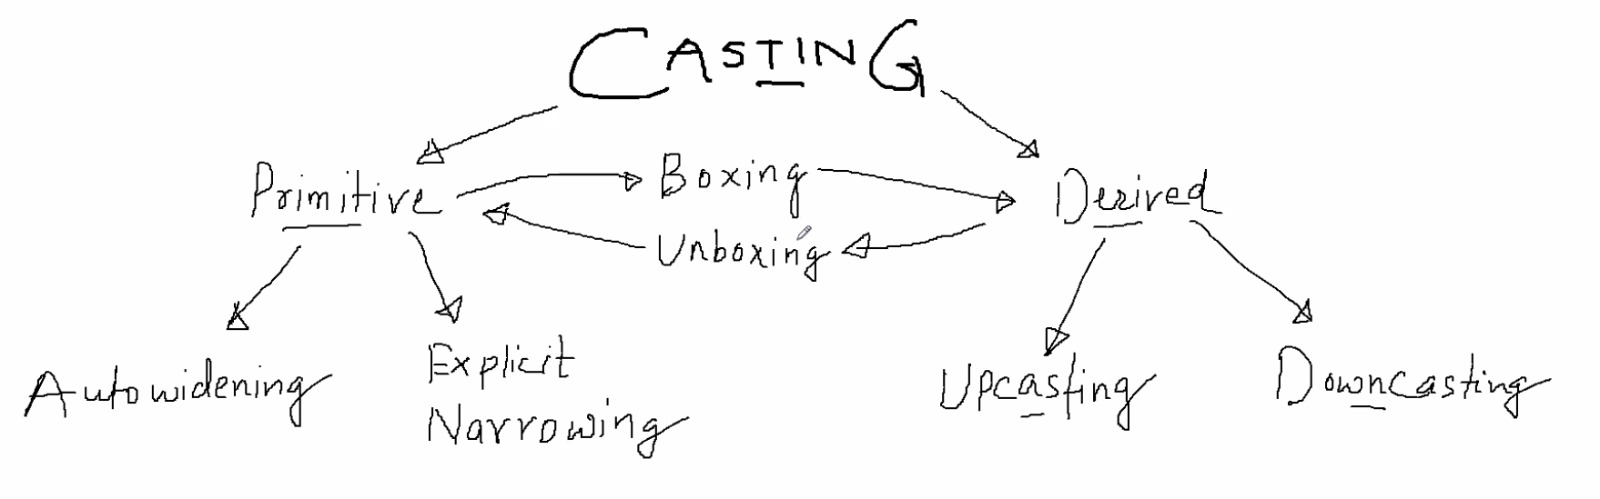 CASTING
Primitive
Boxing
Derived
Unboxing
Autowidening
Explicit
Narrowing
Upcasting
Downcasting